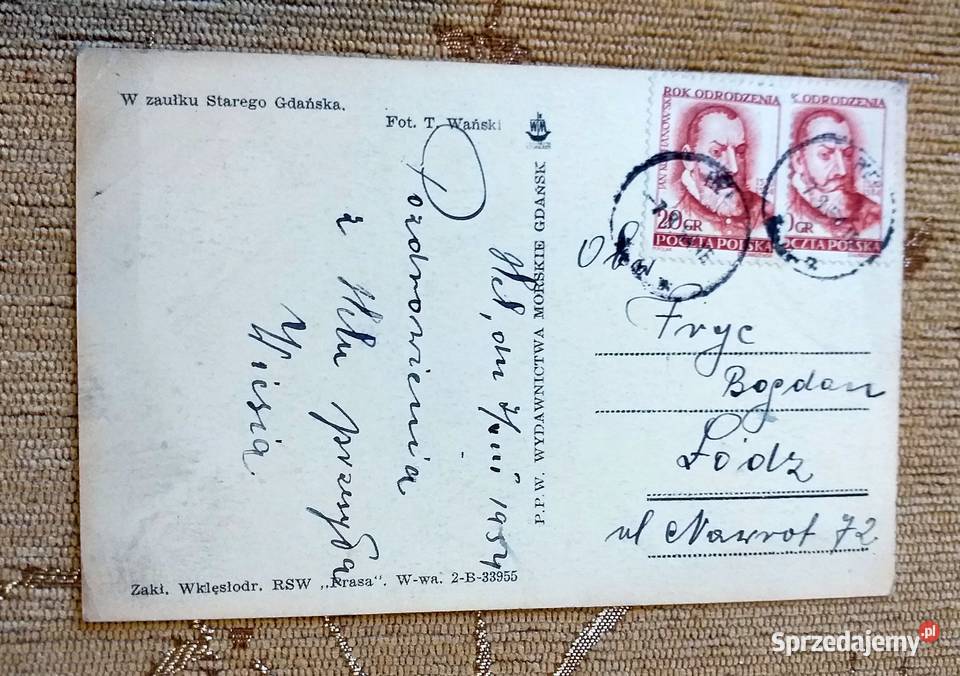 W zaułku Starego Gdańska.
Fot. T. Wański
WM
P.P.W. WYDAWNICTWA MORSKIE GDAŃSK
Hel, dn 1954
Pozdrowienia
z Helu przesyła
Wiesia.
ROK ODRODZENIA
JAN KOCHANOWSKI
20 GR
POCZTA POLSKA
K ODRODZENIA
0 GR
OCZTA POLSKA
Ob
Fryc
Bogdan
Łódz
ul Nawrot 72
Zakł. Wklęsłodr. RSW „Prasa". W-wa. 2-B-33955
Sprzedajemy.pl